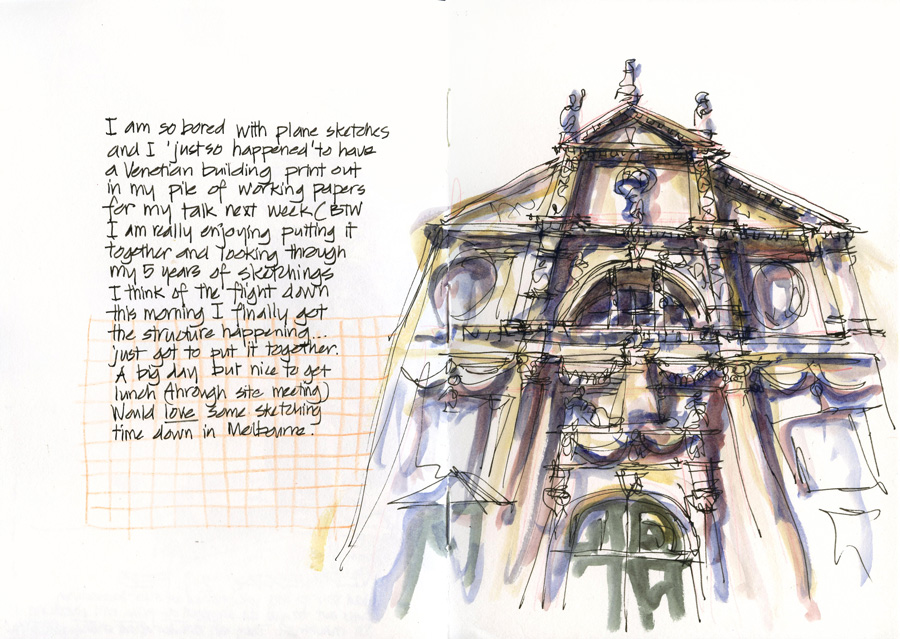 I am so bored with plane sketches
and I 'just so happened' to have
a Venetian building print out
in my pile of working papers
for my talk next week (BTW
I am really enjoying putting it
together and looking through
my 5 years of sketchings
I think of the flight down
this morning I finally got
the structure happening...
just got to put it together.
A big day but nice to get
lunch (through site meeting)
Would love some sketching
time down in Melbourne.